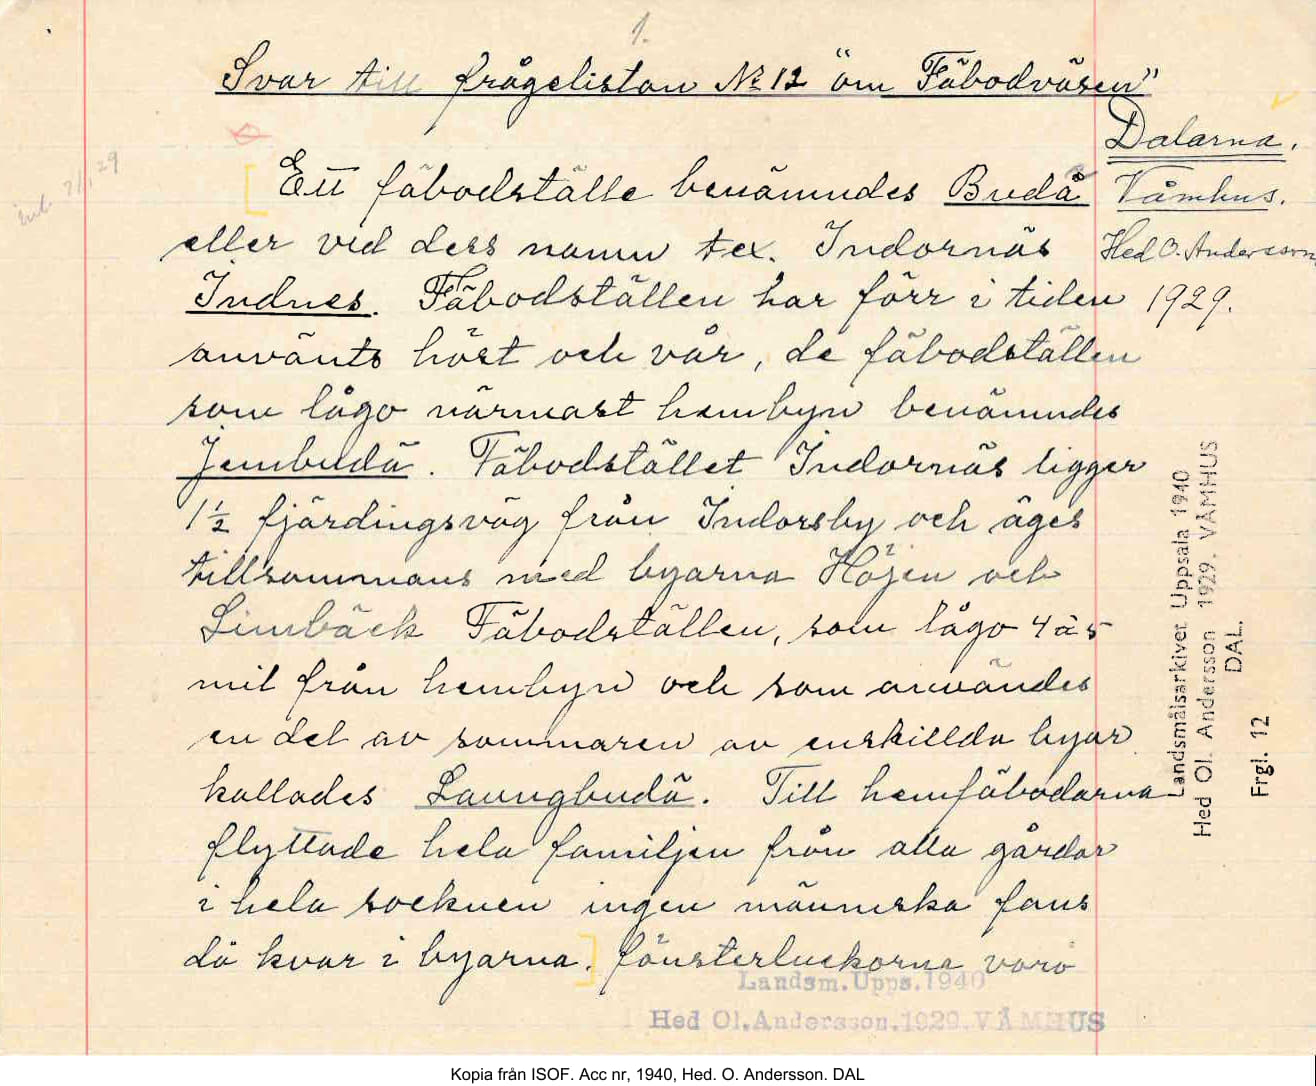 1.
Svar till frågelistan № 12 "om Fäbodväsen"
Dalarna.
Våmhus.
Hed O. Andersson
1929.
ink. 7/1, 29
Ett fäbodställe benämndes Budä
eller ved dess namn tex. Indornäs
Indnes. Fäbodställen har förr i tiden
använts höst och vår, de fäbodställen
som lågo närmast hembyn benämndes
Jembudä. Fäbodstället Indornäs ligger
1½ fjärdingsväg från Indorsby och äges
tillsammans med byarna Höjen och
Limbäck Fäbodställen, som lågo 4 à 5
mil från hembyn och som användes
en del av sommaren av enskillda byar
kallades Laungbudä. Till hemfäbodarna
flyttade hela familjen från alla gårdar
i hela socknen ingen människa fans
då kvar i byarna. fönsterluckorna voro
Landsm. Upps. 1940
Hed Ol. Andersson. 1929. VÅMHUS
Landsmålsarkivet Uppsala 1940
Hed Ol. Andersson 1929. VÅMHUS
DAL.
Frgl. 12
Kopia från ISOF. Acc nr, 1940, Hed. O. Andersson. DAL